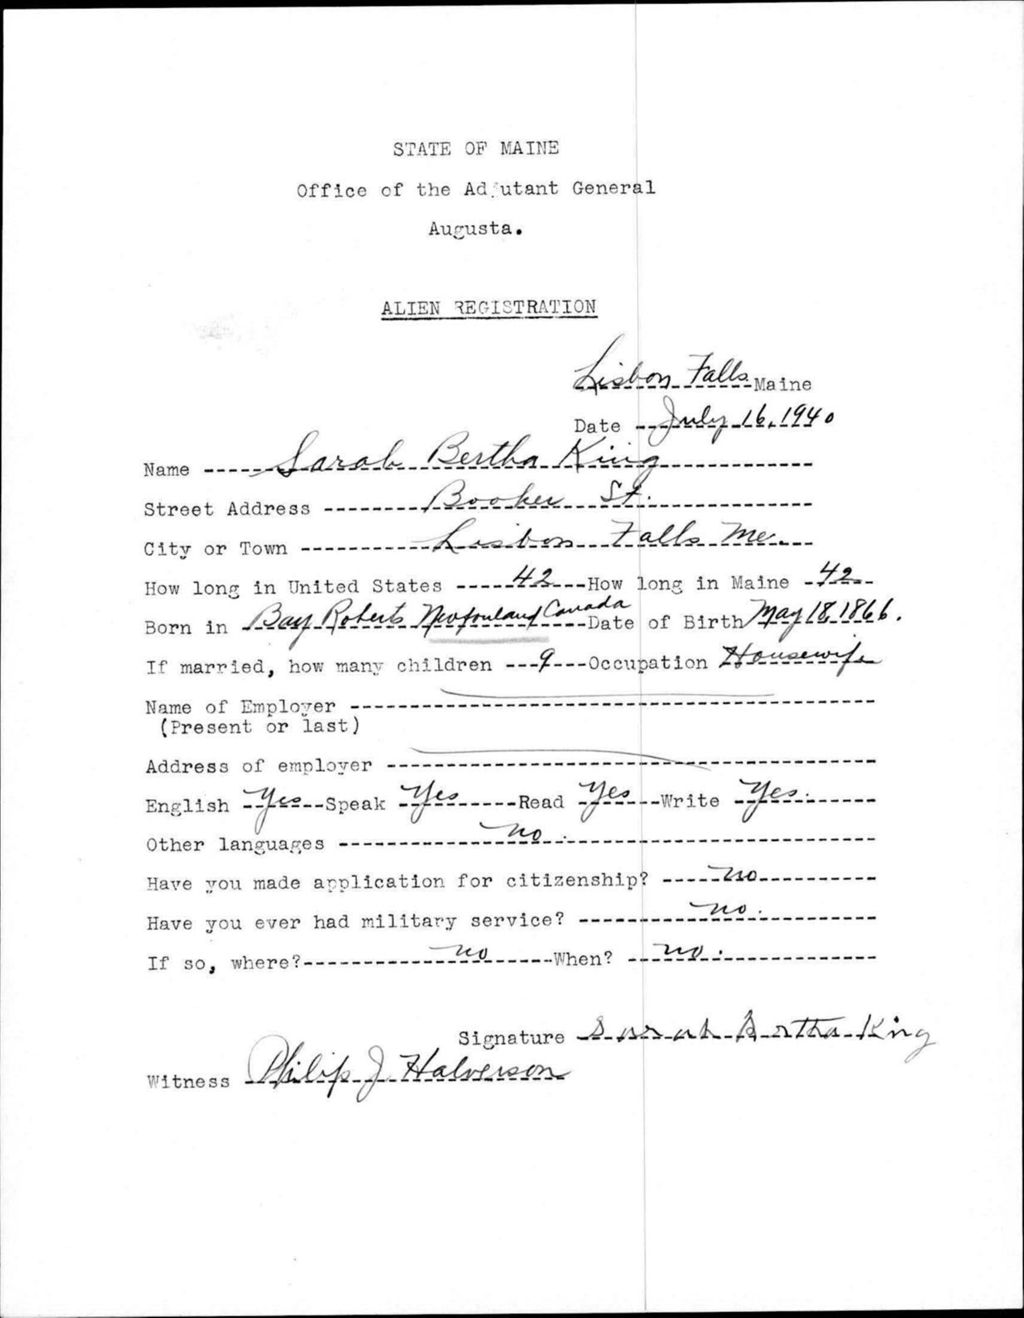 STATE OF MAINE
Office of the Adjutant General
Augusta.
ALIEN REGISTRATION
Lisbon Falls Maine
Date July 16, 1940
Name Sarah Bertha King
Street Address Booker St.
City or Town Lisbon Falls Me.
How long in United States 42 How long in Maine 42
Born in Bay Roberts Newfouland Canada Date of Birth May 18, 1866.
If married, how many children 9 Occupation Housewife
Name of Employer
(Present or last)
Address of employer
English Yes Speak Yes Read Yes Write Yes.
Other languages no.
Have you made application for citizenship? no
Have you ever had military service? no.
If so, where? no When? no.
Signature Sarah Bertha King
Witness Philip J. Halverson